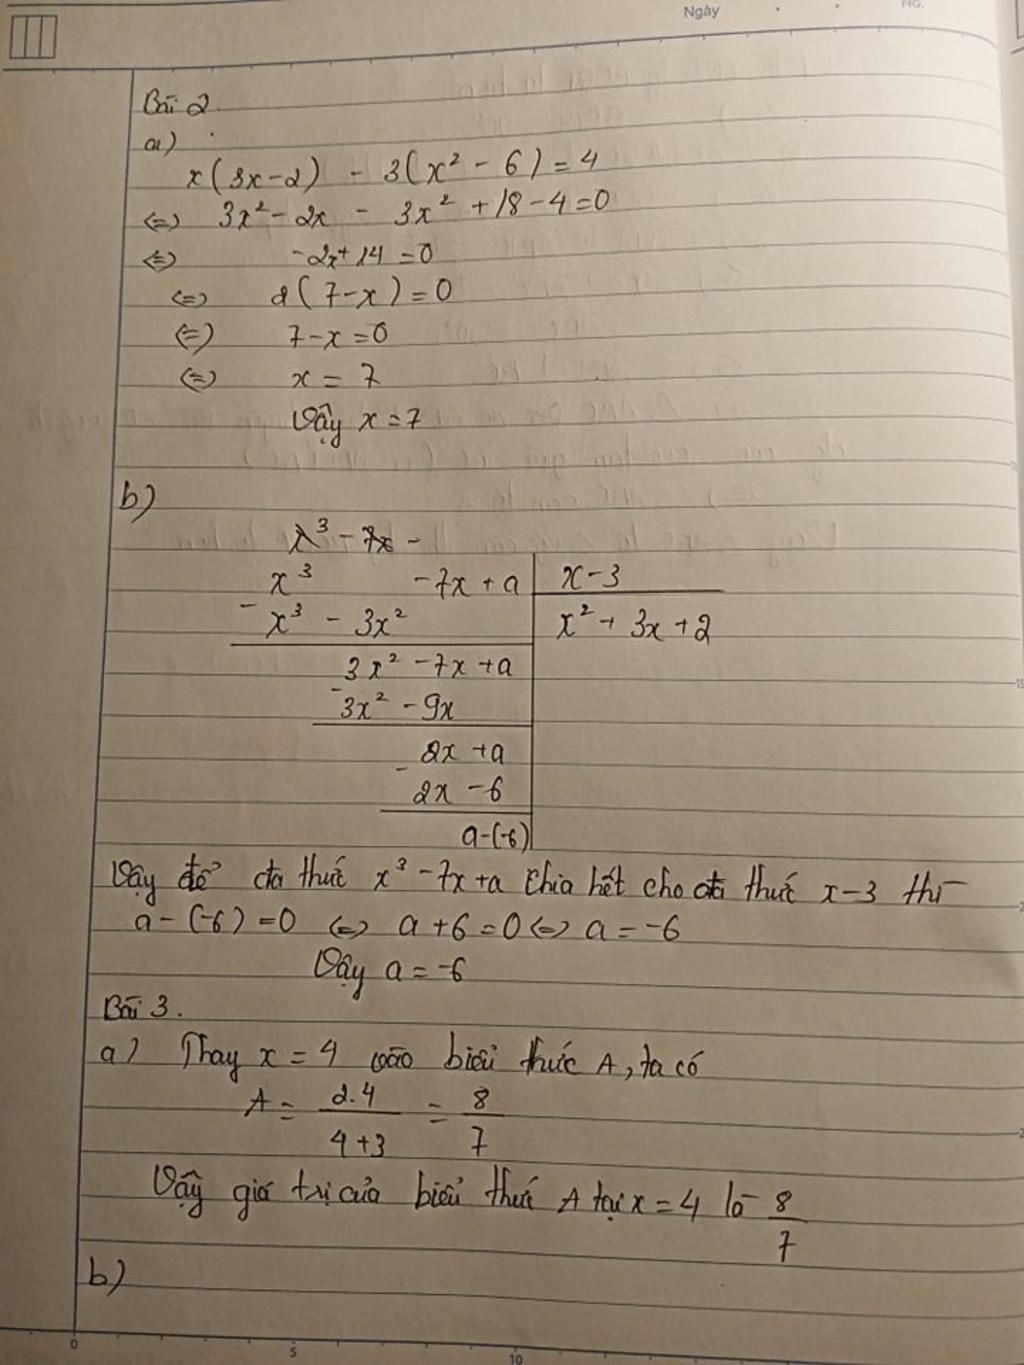 Ngày
No.
Bài 2.
a)
x(3x-2) - 3(x² - 6) = 4
<=> 3x² - 2x - 3x² + 18 - 4 = 0
<=> -2x + 14 = 0
<=> 2(7-x) = 0
<=> 7-x = 0
<=> x = 7
Vậy x = 7
b)
x³ - 7x -
x³ - 7x + a | x - 3
- x³ - 3x² | x² + 3x + 2
3x² - 7x + a
- 3x² - 9x
2x + a
- 2x - 6
a - (-6)
Vậy để đa thức x³ - 7x + a chia hết cho đa thức x - 3 thì
a - (-6) = 0 <=> a + 6 = 0 <=> a = -6
Vậy a = -6
Bài 3.
a) Thay x = 4 vào biểu thức A, ta có
A = 2.4 / 4+3 = 8 / 7
Vậy giá trị của biểu thức A tại x = 4 là 8 / 7
b)
0 5 10